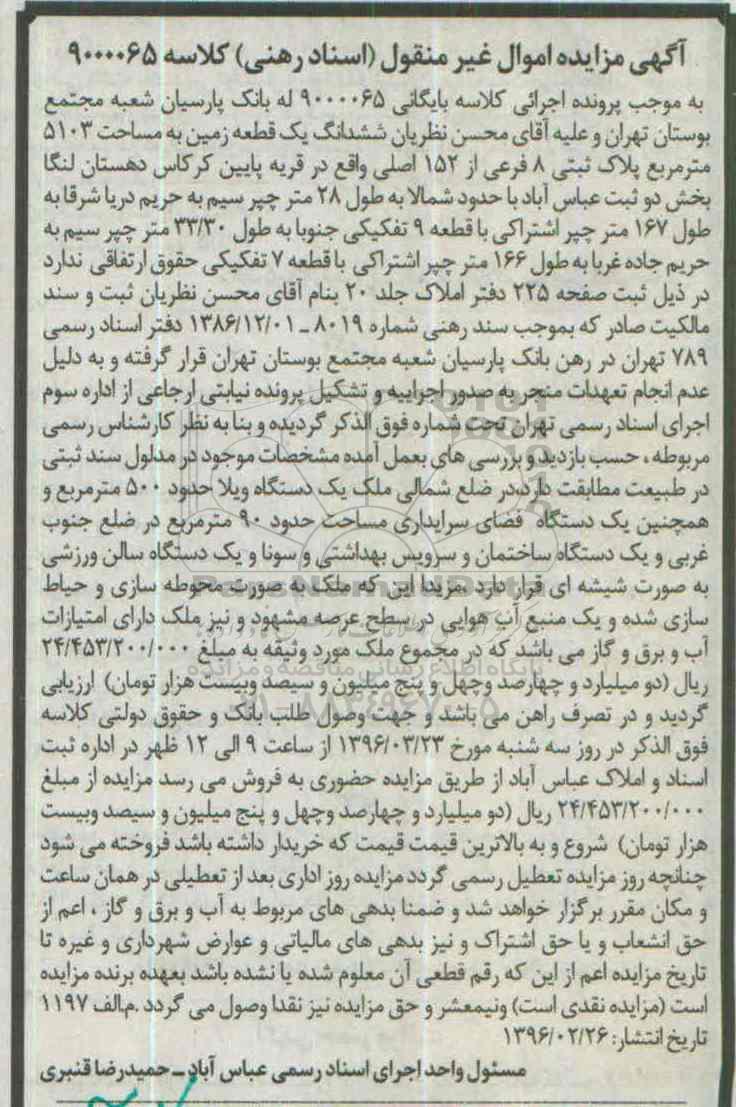 آگهی مزایده اموال غیر منقول (اسناد رهنی) کلاسه ۹۰۰۰۰۶۵
به موجب پرونده اجرائی کلاسه بایگانی ۹۰۰۰۰۶۵ له بانک پارسیان شعبه مجتمع
بوستان تهران و علیه آقای محسن نظریان ششدانگ یک قطعه زمین به مساحت ۵۱۰۳
مترمربع پلاک ثبتی ۸ فرعی از ۱۵۲ اصلی واقع در قریه پایین کرکاس دهستان لنگا
بخش دو ثبت عباس آباد با حدود شمالا به طول ۲۸ متر چپر سیم به حریم دریا شرقا به
طول ۱۶۷ متر چپر اشتراکی با قطعه ۹ تفکیکی جنوبا به طول ۳۳/۳۰ متر چپر سیم به
حریم جاده غربا به طول ۱۶۶ متر چپر اشتراکی با قطعه ۷ تفکیکی حقوق ارتفاقی ندارد
در ذیل ثبت صفحه ۲۲۵ دفتر املاک جلد ۲۰ بنام آقای محسن نظریان ثبت و سند
مالکیت صادر که بموجب سند رهنی شماره ۸۰۱۹ ــ ۱۳۸۶/۱۲/۰۱ دفتر اسناد رسمی
۷۸۹ تهران در رهن بانک پارسیان شعبه مجتمع بوستان تهران قرار گرفته و به دلیل
عدم انجام تعهدات منجر به صدور اجراییه و تشکیل پرونده نیابتی ارجاعی از اداره سوم
اجرای اسناد رسمی تهران تحت شماره فوق الذکر گردیده و بنا به نظر کارشناس رسمی
مربوطه ، حسب بازدید و بررسی های بعمل آمده مشخصات موجود در مدلول سند ثبتی
در طبیعت مطابقت دارد،در ضلع شمالی ملک یک دستگاه ویلا حدود ۵۰۰ مترمربع و
همچنین یک دستگاه فضای سرایداری مساحت حدود ۹۰ مترمربع در ضلع جنوب
غربی و یک دستگاه ساختمان و سرویس بهداشتی و سونا و یک دستگاه سالن ورزشی
به صورت شیشه ای قرار دارد ،مزیدا این که ملک به صورت محوطه سازی و حیاط
سازی شده و یک منبع آب هوایی در سطح عرصه مشهود و نیز ملک دارای امتیازات
آب و برق و گاز می باشد که در مجموع ملک مورد وثیقه به مبلغ ۲۴/۴۵۳/۲۰۰/۰۰۰
ریال (دو میلیارد و چهارصد وچهل و پنج میلیون و سیصد وبیست هزار تومان) ارزیابی
گردید و در تصرف راهن می باشد و جهت وصول طلب بانک و حقوق دولتی کلاسه
فوق الذکر در روز سه شنبه مورخ ۱۳۹۶/۰۳/۲۳ از ساعت ۹ الی ۱۲ ظهر در اداره ثبت
اسناد و املاک عباس آباد از طریق مزایده حضوری به فروش می رسد مزایده از مبلغ
۲۴/۴۵۳/۲۰۰/۰۰۰ ریال (دو میلیارد و چهارصد وچهل و پنج میلیون و سیصد وبیست
هزار تومان) شروع و به بالاترین قیمت قیمت که خریدار داشته باشد فروخته می شود
چنانچه روز مزایده تعطیل رسمی گردد مزایده روز اداری بعد از تعطیلی در همان ساعت
و مکان مقرر برگزار خواهد شد و ضمنا بدهی های مربوط به آب و برق و گاز ، اعم از
حق انشعاب و یا حق اشتراک و نیز بدهی های مالیاتی و عوارض شهرداری و غیره تا
تاریخ مزایده اعم از این که رقم قطعی آن معلوم شده یا نشده باشد بعهده برنده مزایده
است (مزایده نقدی است) ونیمعشر و حق مزایده نیز نقدا وصول می گردد .م.الف ۱۱۹۷
تاریخ انتشار: ۱۳۹۶/۰۲/۲۶
مسئول واحد اجرای اسناد رسمی عباس آباد ــ حمیدرضا قنبری